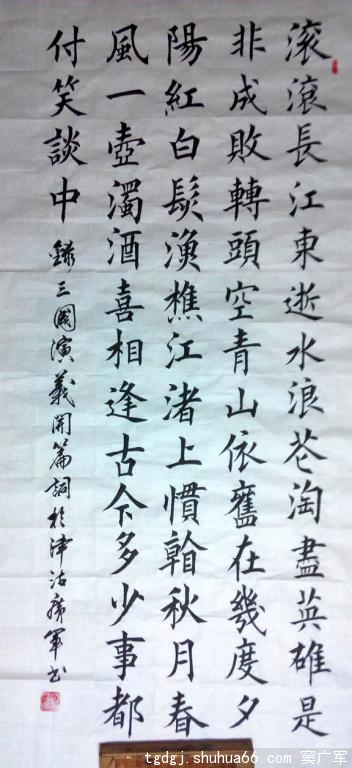 滚滚長江東逝水浪花淘盡英雄是
非成敗轉頭空青山依舊在幾度夕
陽紅白髮漁樵江渚上慣看秋月春
風一壺濁酒喜相逢古今多少事都
付笑談中 錄三國演義開篇詞於津沽廣軍书
tgdgj.shuhua66.com 窦广军